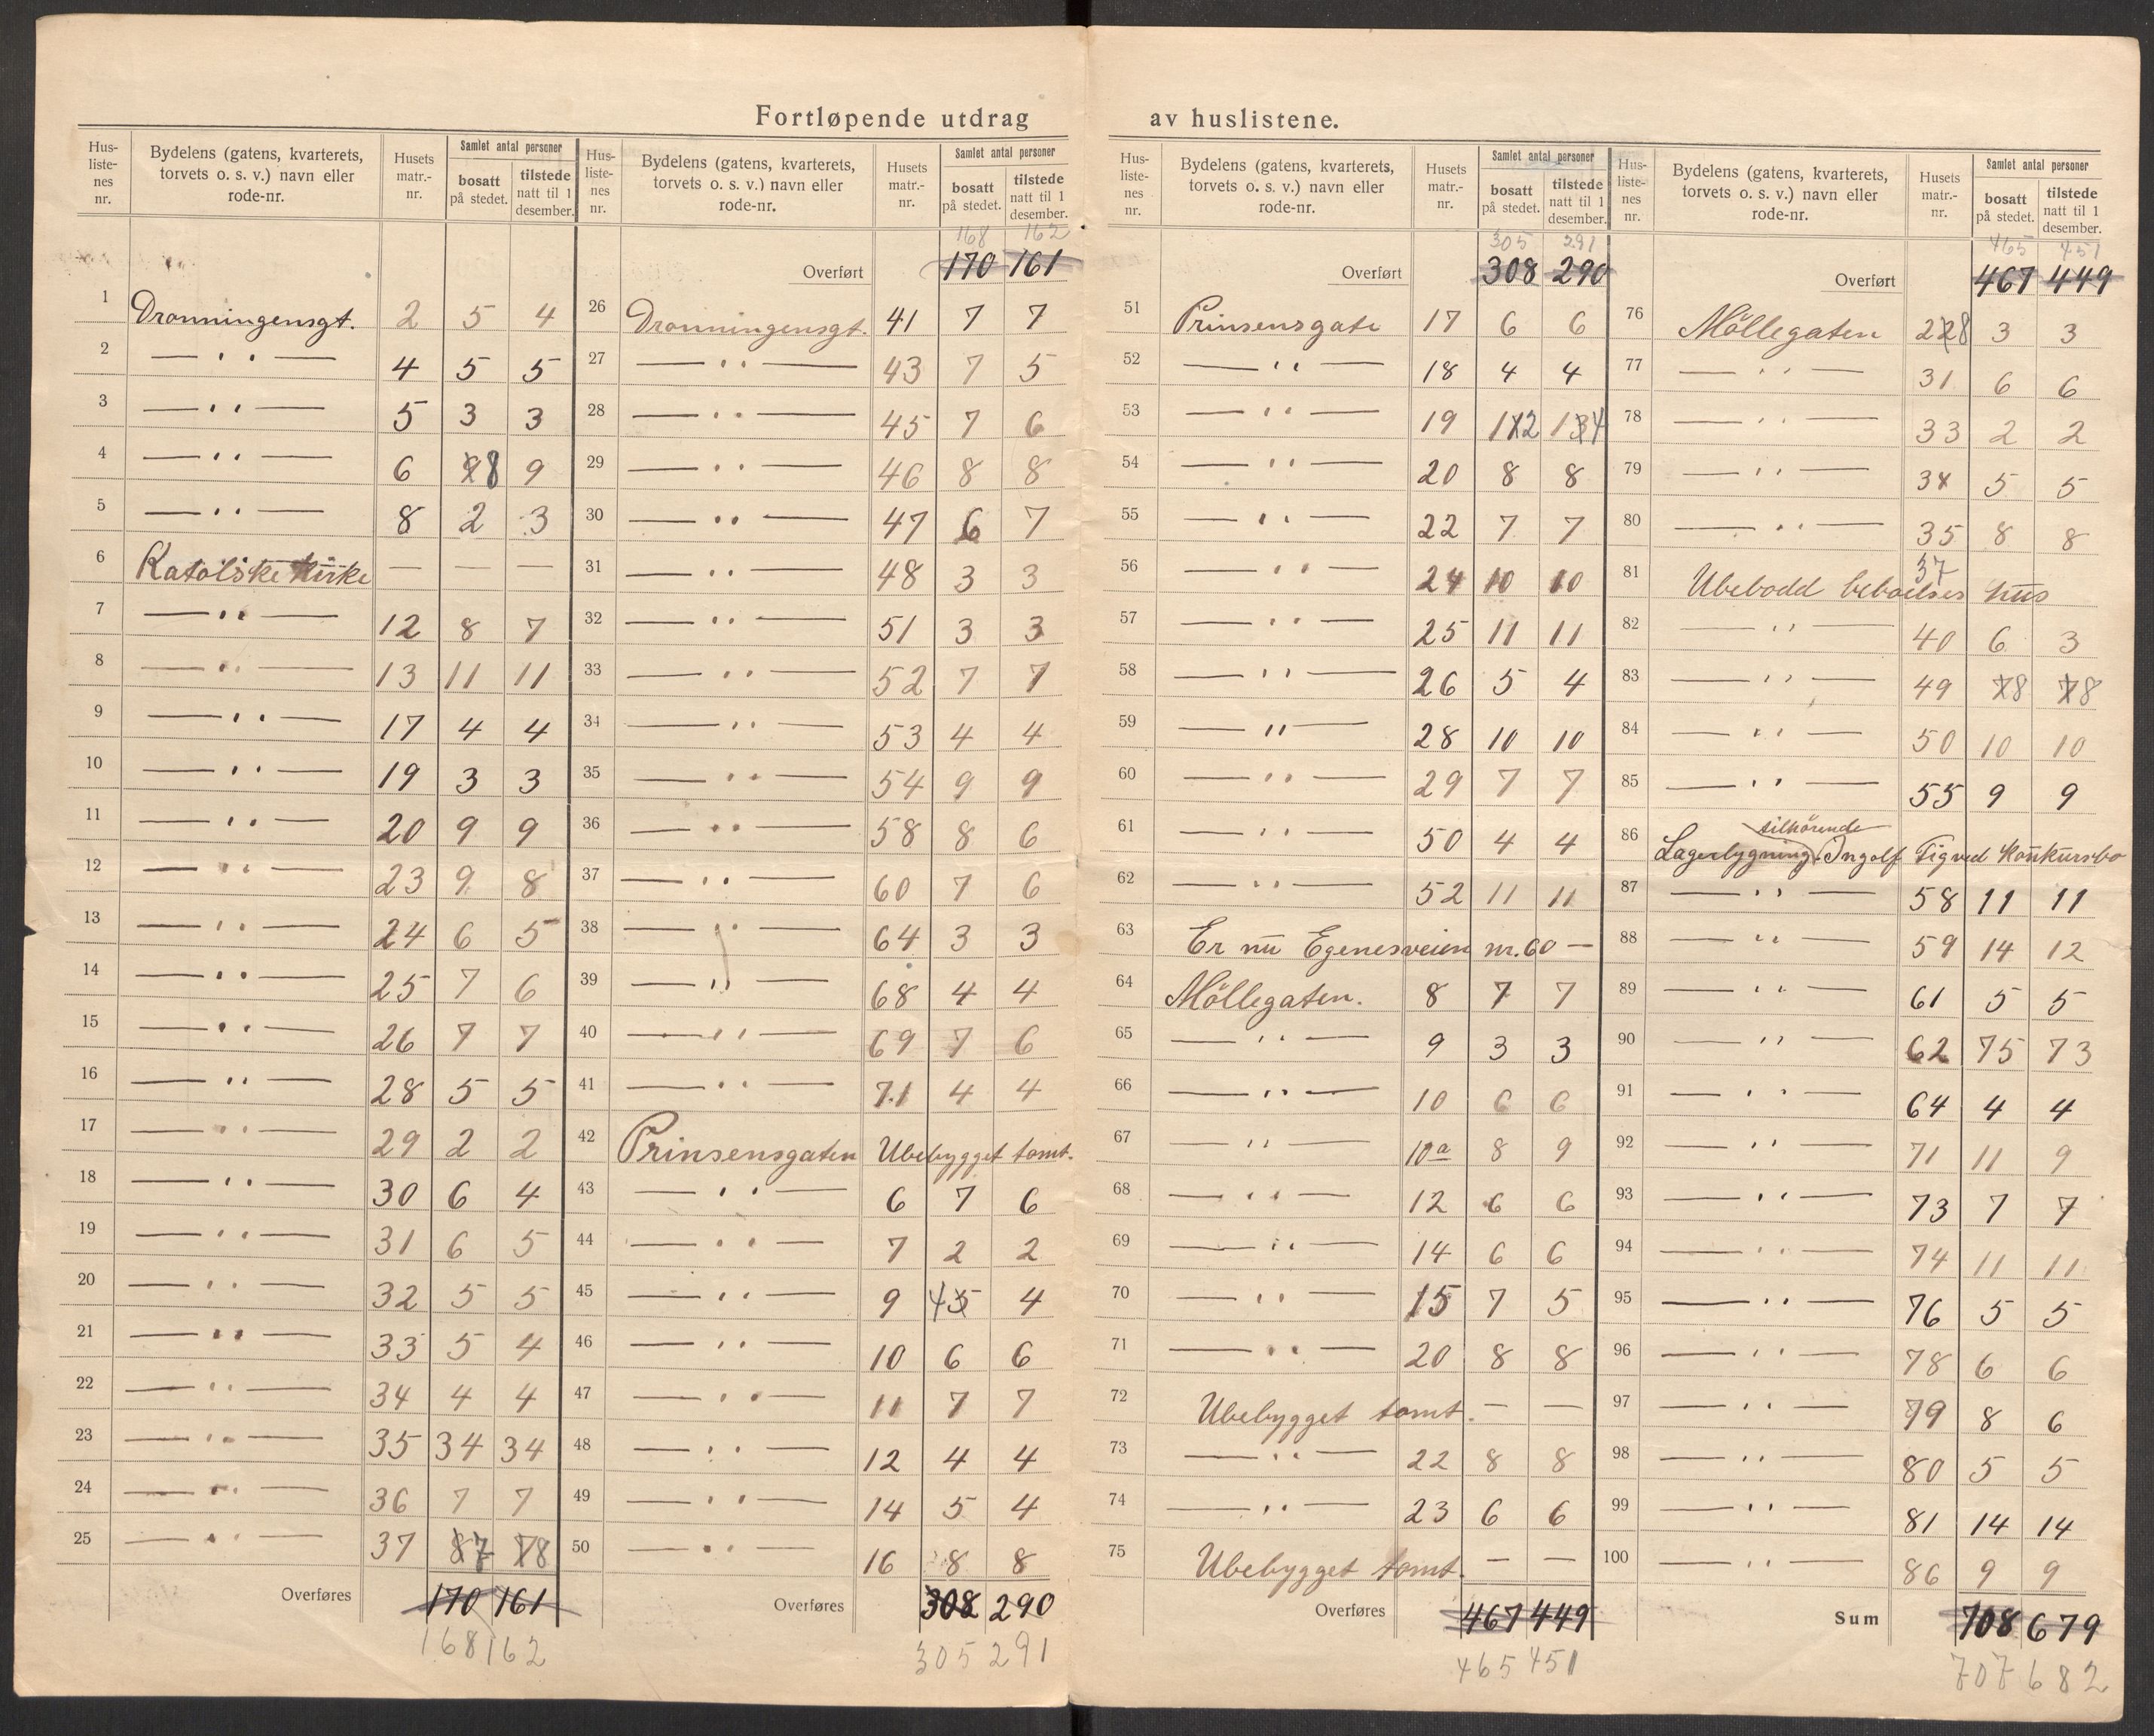 Fortløpende utdrag av huslistene.
Hus-liste-nes nr. | Bydelens (gatens, kvarterets, torvets o. s. v.) navn eller rode-nr. | Husets matr.-nr. | Samlet antal personer bosatt på stedet. | tilstede natt til 1 desember.
1 Dronningensgt. 2 5 4
2 — " — 4 5 5
3 — " — 5 3 3
4 — " — 6 8 9
5 — " — 8 2 3
6 Katolske Kirke — — —
7 — " — 12 8 7
8 — " — 13 11 11
9 — " — 17 4 4
10 — " — 19 3 3
11 — " — 20 9 9
12 — " — 23 9 8
13 — " — 24 6 5
14 — " — 25 7 6
15 — " — 26 7 7
16 — " — 28 5 5
17 — " — 29 2 2
18 — " — 30 6 4
19 — " — 31 6 5
20 — " — 32 5 5
21 — " — 33 5 4
22 — " — 34 4 4
23 — " — 35 34 34
24 — " — 36 7 7
25 — " — 37 87 78
Overføres 170 161
168 162
Hus-liste-nes nr. | Bydelens (gatens, kvarterets, torvets o. s. v.) navn eller rode-nr. | Husets matr.-nr. | Samlet antal personer bosatt på stedet. | tilstede natt til 1 desember.
168 162
Overført 170 161
26 Dronningensgt. 41 7 7
27 — " — 43 7 5
28 — " — 45 7 6
29 — " — 46 8 8
30 — " — 47 6 7
31 — " — 48 3 3
32 — " — 51 3 3
33 — " — 52 7 7
34 — " — 53 4 4
35 — " — 54 9 9
36 — " — 58 8 6
37 — " — 60 7 6
38 — " — 64 3 3
39 — " — 68 4 4
40 — " — 69 7 6
41 — " — 71 4 4
42 Prinsensgaten Ubebygget tomt.
43 — " — 6 7 6
44 — " — 7 2 2
45 — " — 9 45 4
46 — " — 10 6 6
47 — " — 11 7 7
48 — " — 12 4 4
49 — " — 14 5 4
50 — " — 16 8 8
Overføres 308 290
305 291
Hus-liste-nes nr. | Bydelens (gatens, kvarterets, torvets o. s. v.) navn eller rode-nr. | Husets matr.-nr. | Samlet antal personer bosatt på stedet. | tilstede natt til 1 desember.
305 291
Overført 308 290
51 Prinsensgate 17 6 6
52 — " — 18 4 4
53 — " — 19 112 134
54 — " — 20 8 8
55 — " — 22 7 7
56 — " — 24 10 10
57 — " — 25 11 11
58 — " — 26 5 4
59 — " — 28 10 10
60 — " — 29 7 7
61 — " — 50 4 4
62 — " — 52 11 11
63 Er nu Egenesveien nr. 60 —
64 Möllegaten. 8 7 7
65 — " — 9 3 3
66 — " — 10 6 6
67 — " — 10a 8 9
68 — " — 12 6 6
69 — " — 14 6 6
70 — " — 15 7 5
71 — " — 20 8 8
72 Ubebygget tomt. — —
73 — " — 22 8 8
74 — " — 23 6 6
75 Ubebygget tomt. — —
Overføres 467 449
465 451
Hus-liste-nes nr. | Bydelens (gatens, kvarterets, torvets o. s. v.) navn eller rode-nr. | Husets matr.-nr. | Samlet antal personer bosatt på stedet. | tilstede natt til 1 desember.
465 451
Overført 467 449
76 Möllegaten 28 3 3
77 — " — 31 6 6
78 — " — 33 2 2
79 — " — 34 5 5
80 — " — 35 8 8
37
81 Ubebodd beboelses hus
82 — " — 40 6 3
83 — " — 49 78 78
84 — " — 50 10 10
85 — " — 55 9 9
tilhörende
86 Lagerbygning Ingolf Tigved Konkursbo
87 — " — 58 11 11
88 — " — 59 14 12
89 — " — 61 5 5
90 — " — 62 75 73
91 — " — 64 4 4
92 — " — 71 11 9
93 — " — 73 7 7
94 — " — 74 11 11
95 — " — 76 5 5
96 — " — 78 6 6
97 — " — 79 8 6
98 — " — 80 5 5
99 — " — 81 14 14
100 — " — 86 9 9
Sum 708 679
707 682